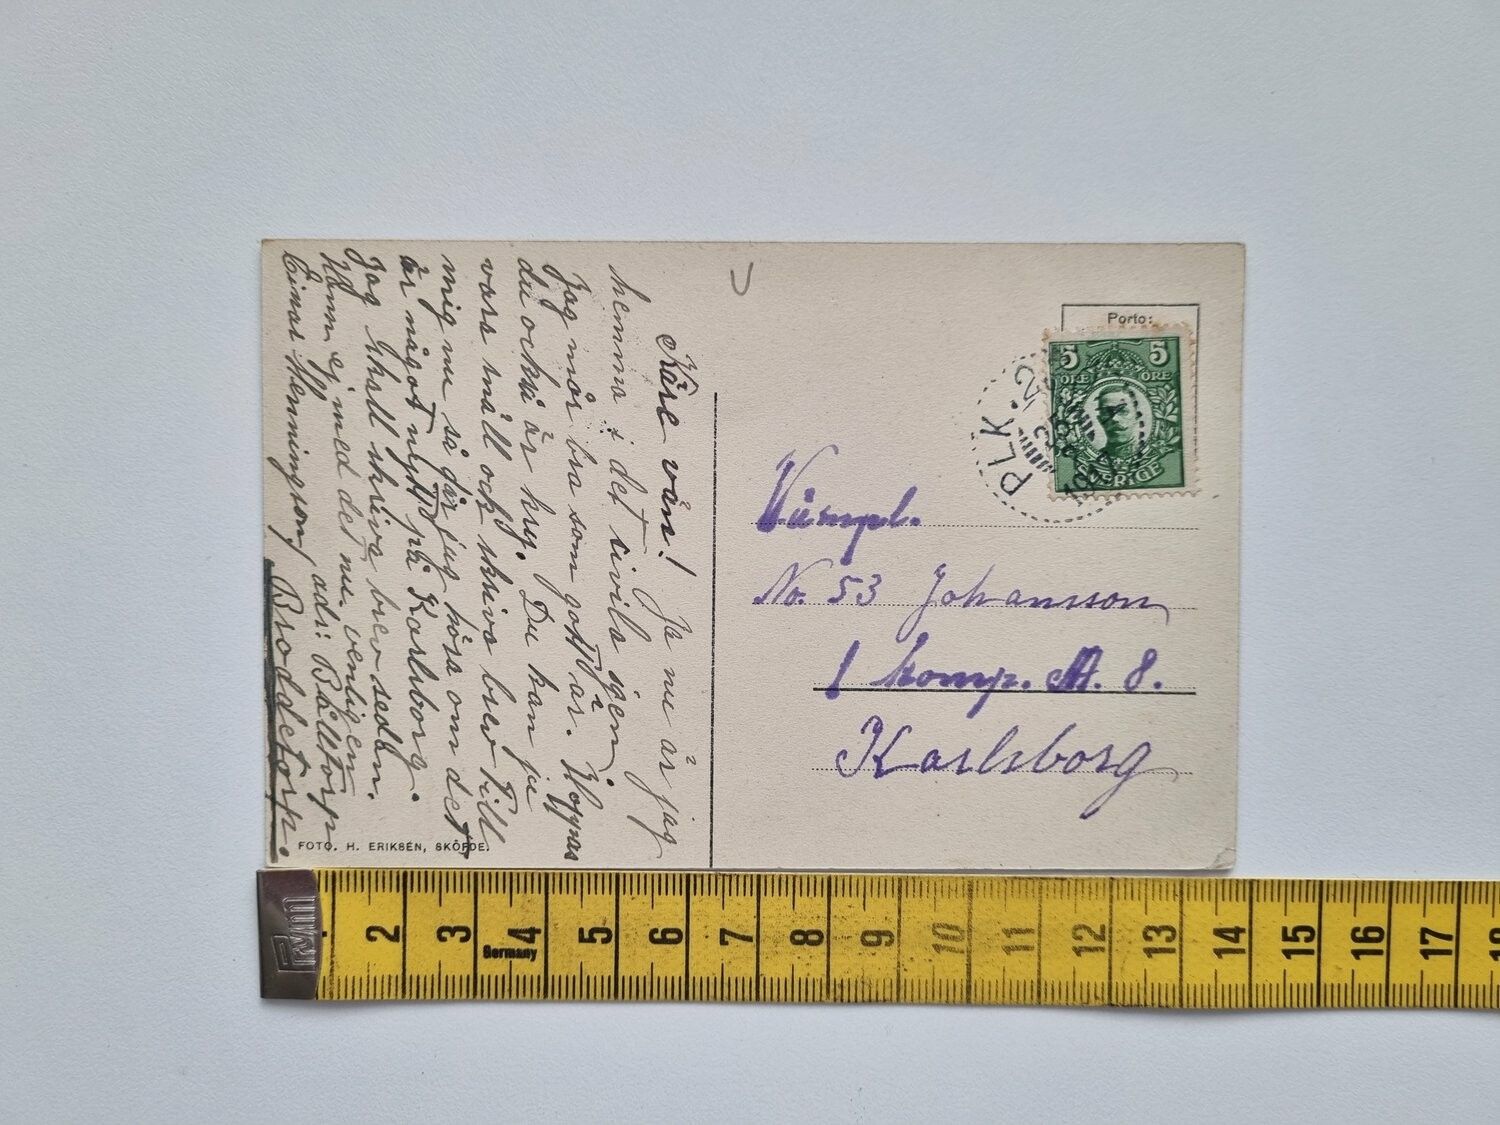 Käre vän!
Ja nu är jag
hemma i det civila igen.
Jag mår bra som gott är. Hoppas
du också är kry. Du kan ju
vara snäll och skriva brev till
mig nu så får jag höra om det
är något nytt på Karlsborg.
Jag skall skriva brev sedan.
Hann ej med det nu. venligen
Einar Henningson, adr: Bälltorp
Broddetorp.
FOTO. H. ERIKSEN, SKÖFDE.
Porto:
5 5
ÖRE ÖRE
SVERIGE
PLK. 2
Vämpl.
No. 53 Johansson
1 komp. A. 8.
Karlsborg
Prym
2 3 4 5 6 7 8 9 10 11 12 13 14 15 16 17 18
Germany